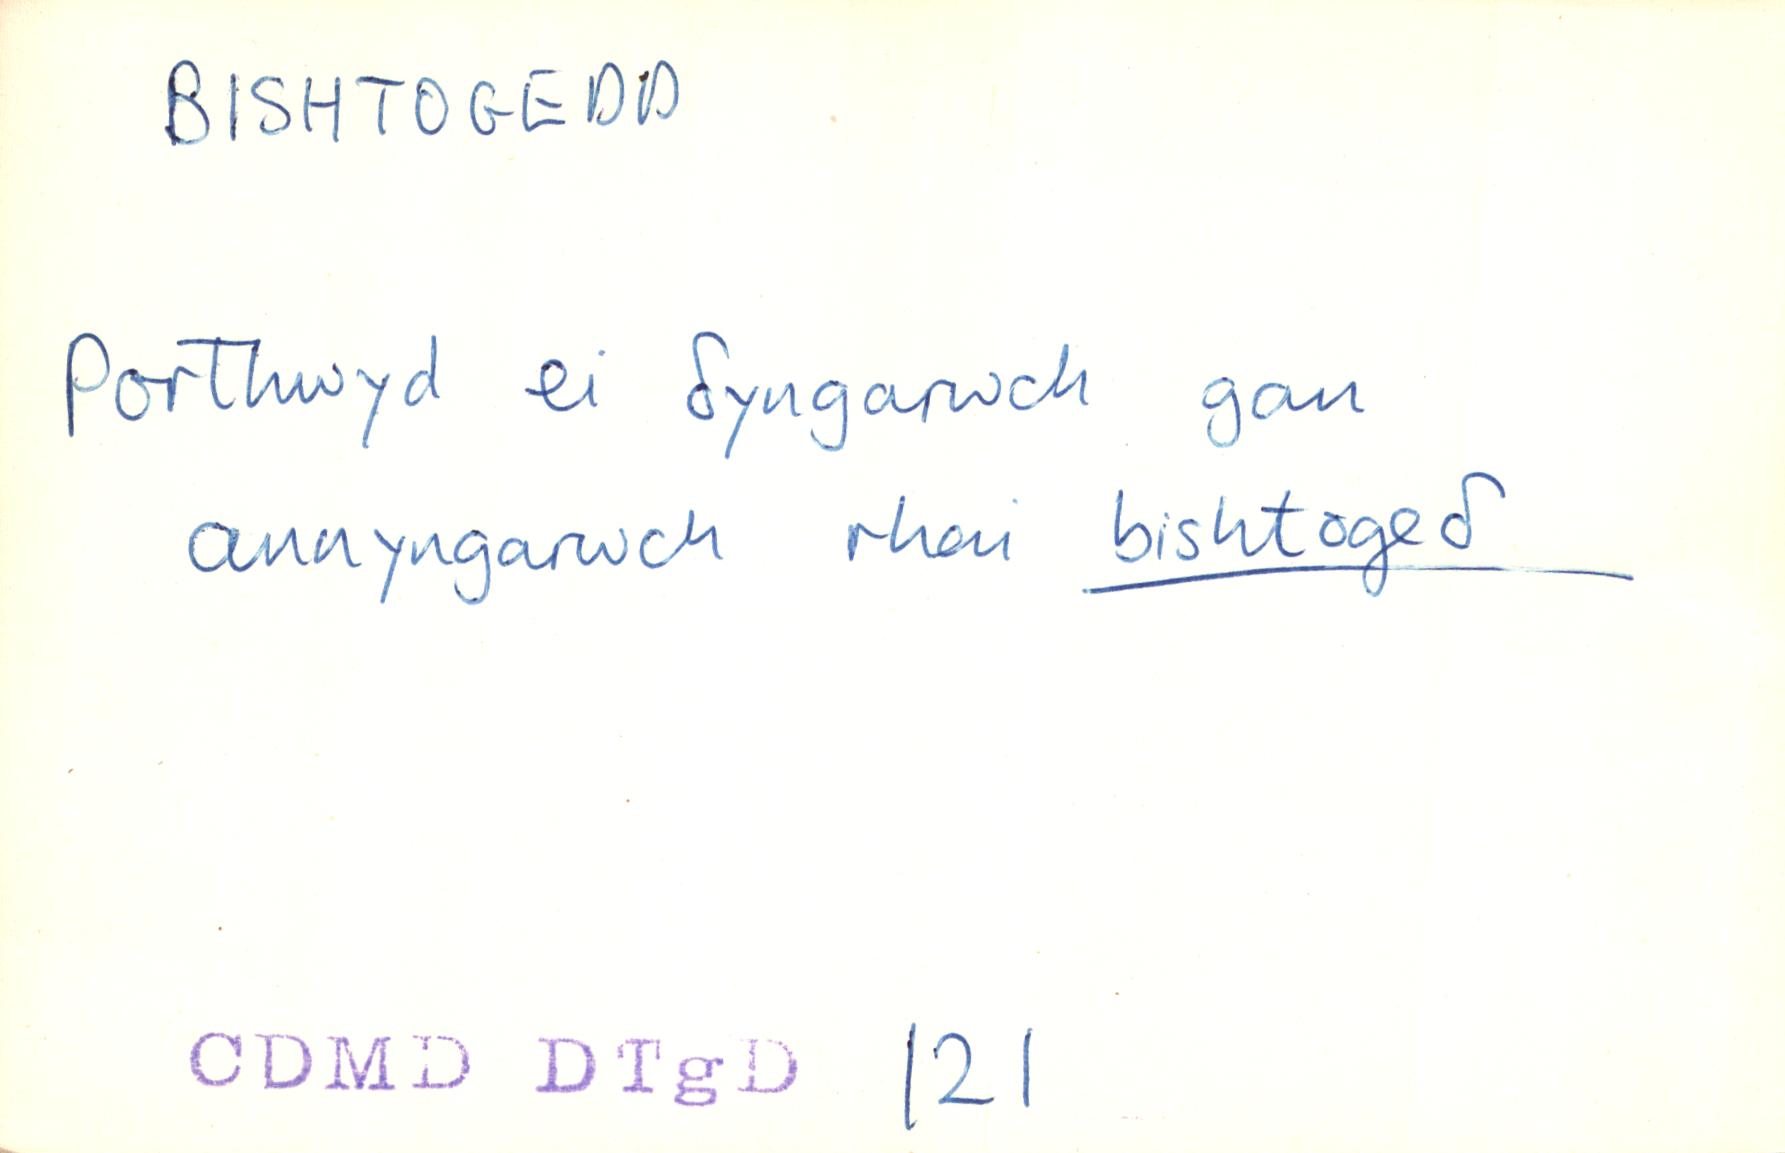 BISHTOGEDD
Porthwyd ei δyngarwch gan
annyngarwch rhai bishtogeδ
CDMD DTgD 121